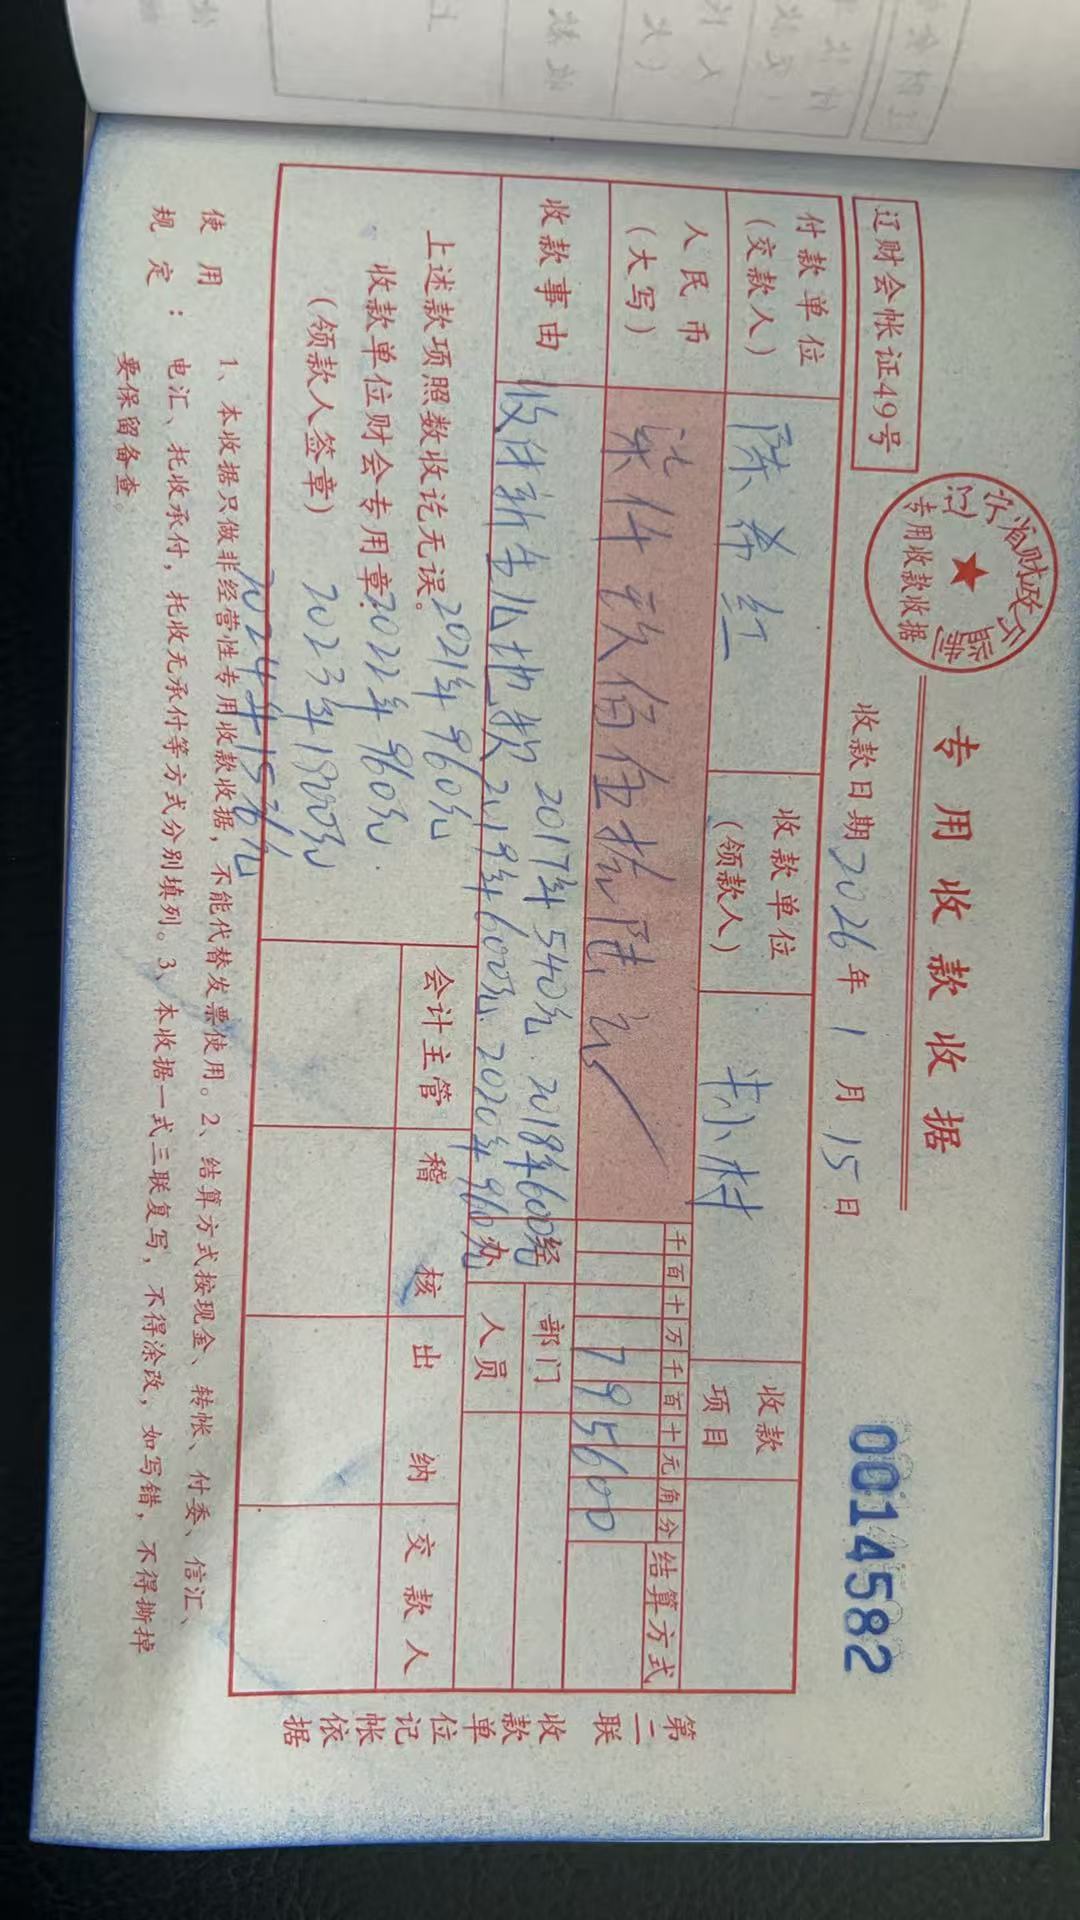 专用收款收据
辽宁省财政厅监制
专用收款收据
辽财会帐证49号
收款日期2026年1月15日
0014582
付款单位
(交款人)
陈希红
收款单位
(领款人)
收款
项目
人民币
(大写)
柒仟玖佰伍拾陆元
千百十万千百十元角分
795600
结算方式
收款事由
2017年540元、2018年600元
2019年600元、2020年960元
经办
部门
人员
上述款项照数收讫无误。
2021年960元
收款单位财会专用章:
2022年960元
(领款人签章)
2023年1800元
2024年1536元
会计主管
稽核
出纳
交款人
第二联 收款单位记帐依据
使用
规定:
1、本收据只做非经营性专用收款收据,不能代替发票使用。2、结算方式按现金、转帐、付委、信汇、
电汇、托收承付,托收无承付等方式分别填列。3、本收据一式三联复写,不得涂改,如写错,不得撕掉
要保留备查。